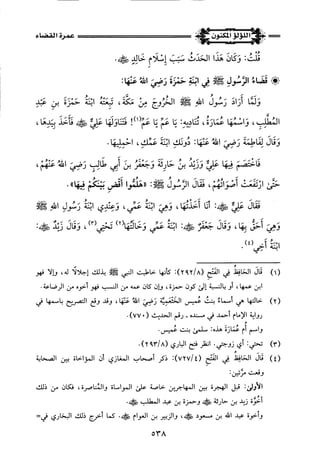 اللؤلؤ المكنون
عمرة القضاء
قُلْتُ: وَكَانَ هَذَا الحَدَثُ سَبَبَ إِسْلَامِ خَالِدٍ ﷺ.
قَضَاءُ الرَّسُولِ ﷺ فِي ابْنَةِ حَمْزَةَ رَضِيَ اللهُ عَنْهَا:
وَلَمَّا أَرَادَ رَسُولُ اللهِ ﷺ الخُرُوجَ مِنْ مَكَّةَ، تَبِعَتْهُ ابْنَةُ حَمْزَةَ بنِ عَبْدِ
المُطَّلِبِ، وَاسْمُهَا عُمَارَةُ، تُنَادِيهِ: يَا عَمِّ يَا عَمِّ(١)! فَتَنَاوَلَهَا عَلِيٌّ ﷺ فَأَخَذَ بِيَدِهَا،
وَقَالَ لِفَاطِمَةَ رَضِيَ اللهُ عَنْهَا: دُونَكِ ابْنَةَ عَمِّكِ، احْمِلِيهَا.
فَاخْتَصَمَ فِيهَا عَلِيٌّ وَزَيْدُ بنُ حَارِثَةَ وَجَعْفَرُ بنُ أَبِي طَالِبٍ رَضِيَ اللهُ عَنْهُمْ،
حَتَّى ارْتَفَعَتْ أَصْوَاتُهُمْ، فَقَالَ الرَّسُولُ ﷺ: «هَلُمُّوا أَقْضِ بَيْنَكُمْ فِيهَا».
فَقَالَ عَلِيٌّ ﷺ: أَنَا أَخَذْتُهَا، وَهِيَ ابْنَةُ عَمِّي، وَعِنْدِي ابْنَةُ رَسُولِ اللهِ ﷺ
وَهِيَ أَحَقُّ بِهَا، وَقَالَ جَعْفَرٌ ﷺ: ابْنَةُ عَمِّي وَخَالَتُهَا(٢) تَحْتِي(٣)، وَقَالَ زَيْدٌ ﷺ:
ابْنَةُ أَخِي(٤).
(١) قَالَ الحَافِظُ فِي الفَتْحِ (٢٩٢/٨): كأنها خاطبت النبي ﷺ بذلك إجلالًا له، وإلا فهو
ابن عمها، أو بالنسبة إلى كون حمزة، وإن كان عمه من النسب فهو أخوه من الرضاعة.
(٢) خالتها هي أسماءُ بنتُ عُميسٍ الخَثْعَمِيَّة رَضِيَ اللهُ عَنْهَا، وقد وقع التصريح باسمها في
رواية الإمام أحمد في مسنده ـ رقم الحديث (٧٧٠).
واسم أم عُمَارَة هذه: سلمىٰ بنت عُميس.
(٣) تحتي: أي زوجتي. انظر فتح الباري (٢٩٣/٨).
(٤) قَالَ الحَافِظُ فِي الفَتْحِ (٧٢٧/٤): ذكر أصحاب المغازي أن المؤاخاة بين الصحابة
وقعت مرَّتين:
الأولىٰ: قبل الهجرة بين المهاجرين خاصة علىٰ المواساة والمُناصرة، فكان من ذلك
أُخُوَّة زيد بن حارثة ﷺ وحمزة بن عبد المطلب ﷺ.
وأخوة عبد الله بن مسعود ﷺ، والزبير بن العوام ﷺ. كما أخرج ذلك البخاري في=
٥٣٨